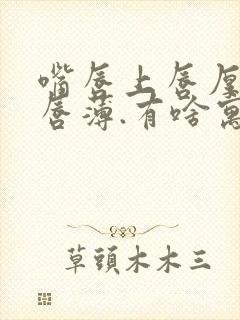 嘴唇上唇厚
唇薄.有啥寓
草頭木木三